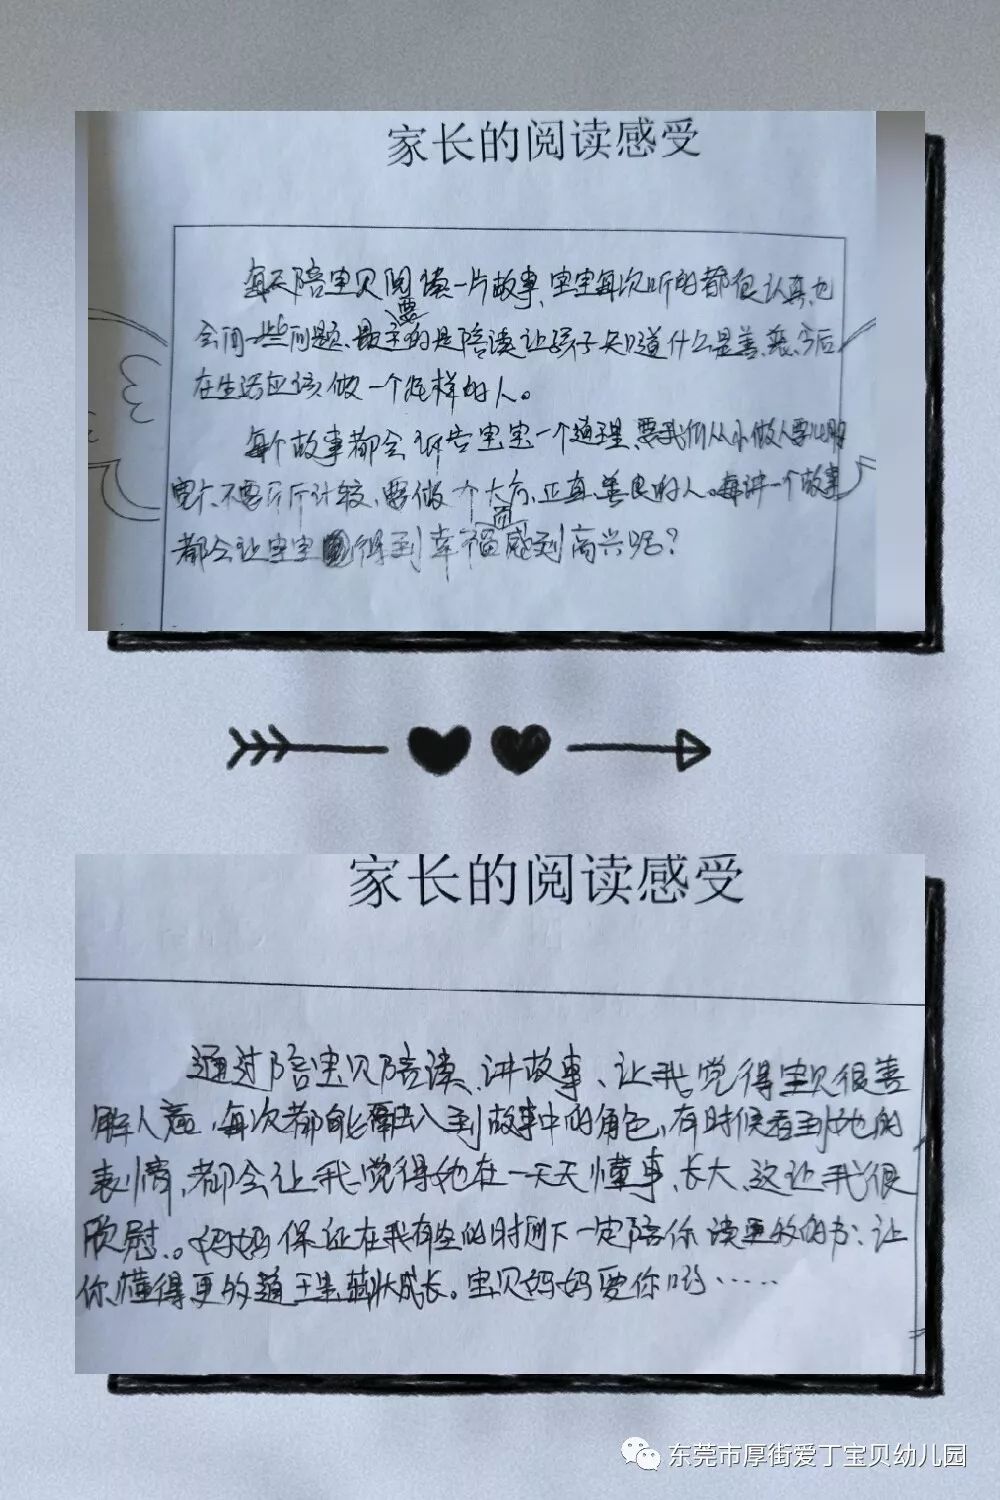 家长的阅读感受
每天陪宝贝阅读一片故事、宝宝每次听的都很认真、也
会问一些问题、最主要的是陪读让孩子知道什么是善、恶、今后
在生活应该做一个怎样的人。
每个故事都会诉告宝宝一个道理、要我们从小做人要心胸
宽广、不要斤斤计较、要做个大方、正直、善良的人。每讲一个故事
都会让宝宝得到幸福而感到高兴呢？
家长的阅读感受
通过陪宝贝陪读、讲故事、让我觉得宝贝很善
解人意、每次都能融入到故事中的角色、有时候看到她的
表情、都会让我觉得她在一天天懂事、长大、这让我很
欣慰。妈妈保证在我有空的时间下一定陪你读更多的书、让
你懂得更多的道理、茁壮成长。宝贝妈妈爱你哟……
东莞市厚街爱丁宝贝幼儿园